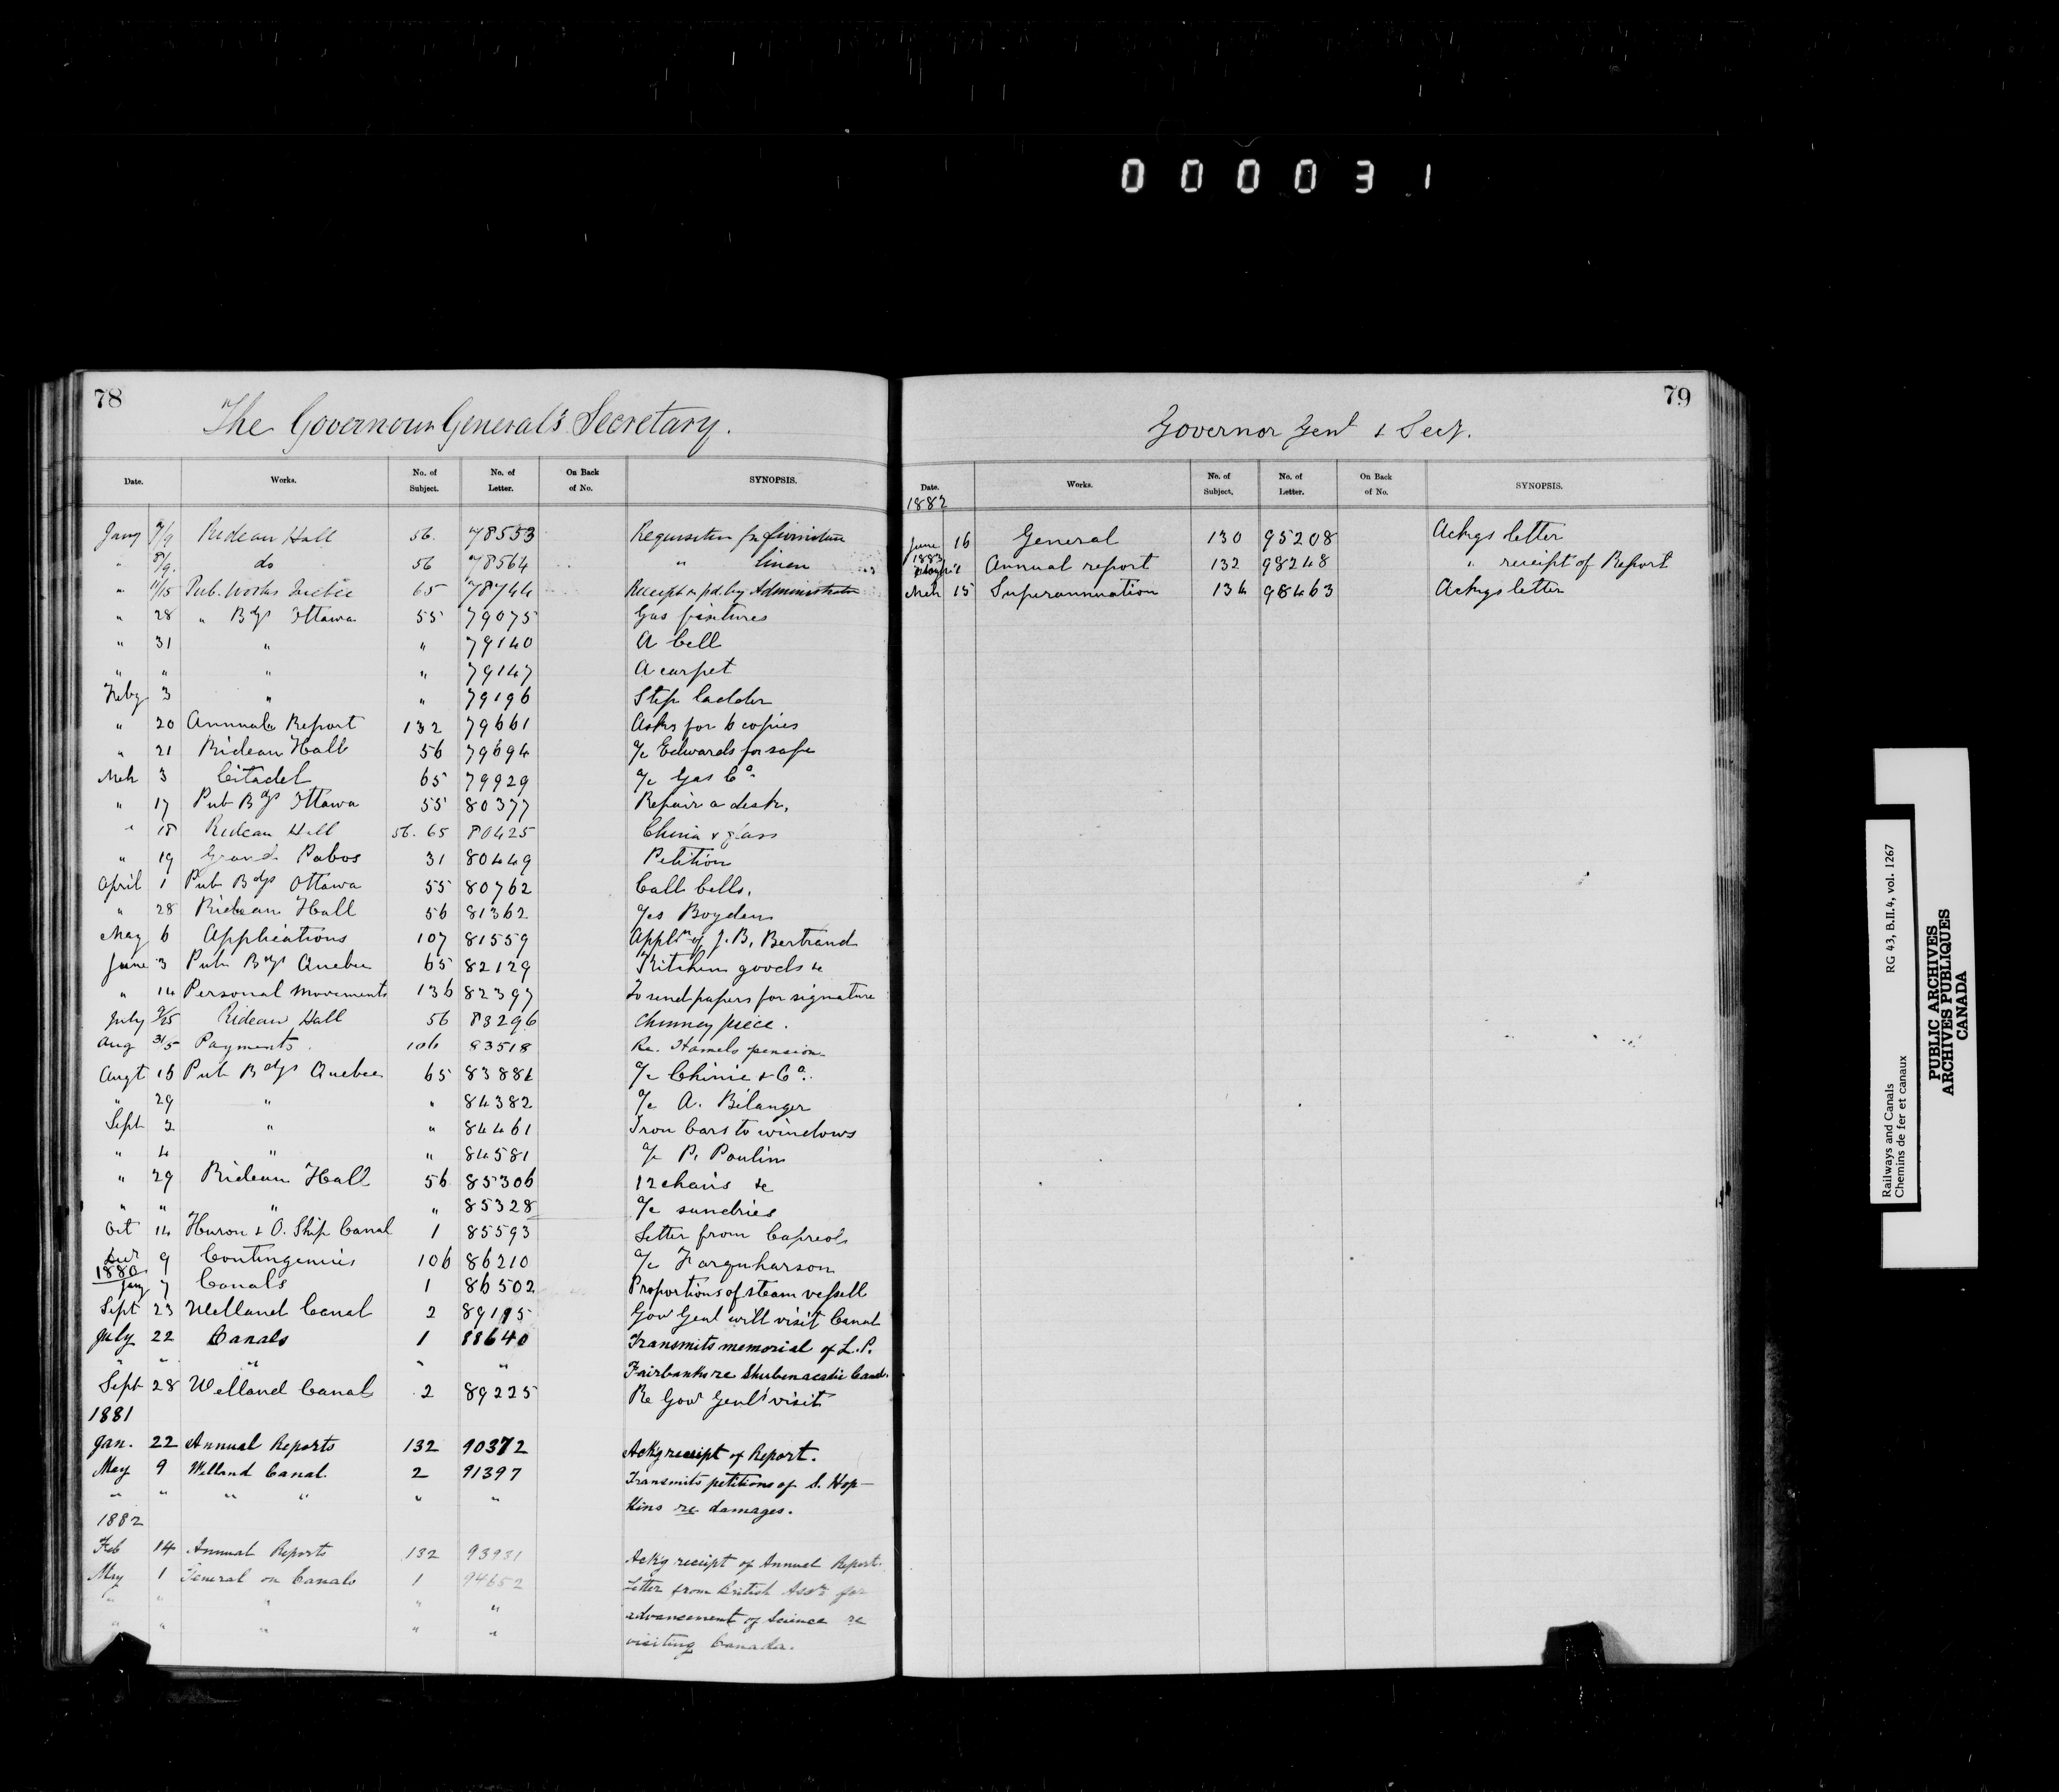 000031
78
The Governour General's Secretary.
Date. Works. No. of Subject. No. of Letter. On Back of No. SYNOPSIS.
Jany 7/9 Rideau Hall 56. 78553 Requisition for furniture
" 8/9. do 56 78564 " linen
" 11/15 Pub. Works Quebec 65 78744 Receipt pd. by Administrator
" 28 " Bdgs Ottawa 55 79075 Gas fixtures
" 31 " " 79140 A bell
" " " " 79147 A carpet
Feby 3 " " 79196 Step ladder
" 20 Annual Report 132 79661 Asks for 6 copies
" 21 Rideau Hall 56 79694 a/c Edwards for safe
Mch 3 Citadel 65 79929 a/c Gas Co.
" 17 Pub Bdgs Ottawa 55 80377 Repair a desk,
" 18 Rideau Hall 56. 65 80425 China & glass
" 19 Grand Pabos 31 80449 Petition
April 1 Pub Bdgs Ottawa 55 80762 Call bells.
" 28 Rideau Hall 56 81362 a/cs Boyden
May 6 Applications 107 81559 Appln of J. B. Bertrand
June 3 Pub Bdgs Quebec 65 82129 Kitchen goods &c
" 14 Personal Movements 136 82397 To send papers for signature
July 9/25 Rideau Hall 56 83296 Chimney piece.
Aug 31/5 Payments. 106 83518 Re. Hamels pension
Augt 16 Pub Bdgs Quebec 65 83886 a/c Chinic & Co.
" 29 " " 84382 a/c A. Bélanger
Sept 2 " " 84461 Iron bars to windows
" 4 " " 84581 a/c P. Poulin
" 29 Rideau Hall 56 85306 12 chairs &c
" " " " 85328 a/c sundries
Oct 14 Huron & O. Ship Canal 1 85593 Letter from Capreol
Decr 9 Contingencies 106 86210 a/c Farquharson
1880
Jany 7 Canals 1 86502 Proportions of steam vessell
Sept 23 Welland Canal 2 89195 Gov Genl will visit Canal
July 22 Canals 1 88640 Transmits memorial of L. P.
" " " " " Fairbanks re Shubenacadie Canal.
Sept 28 Welland Canal 2 89225 Re Gov Genl's visit
1881
Jan. 22 Annual Reports 132 90372 Ackg receipt of Report.
May 9 Welland Canal 2 91397 Transmits petitions of S. Hop-
" " " " " " kins re damages.
1882
Feb 14 Annual Reports 132 93931 Ackg receipt of Annual Report.
May 1 General on Canals 1 94652 Letter from British Assn for
" " " " " advancement of Science re
" " " " " visiting Canada.
79
Governor Genl & Secy.
Date. Works. No. of Subject. No. of Letter. On Back of No. SYNOPSIS.
1882
June 16 General 130 95208 Ackgs letter
1883
Annual report 132 98248 " receipt of Report
Mch 15 Superannuation 134 98463 Ackgs letter
Railways and Canals RG 43, B.II.4, vol. 1267
Chemins de fer et canaux
PUBLIC ARCHIVES
ARCHIVES PUBLIQUES
CANADA